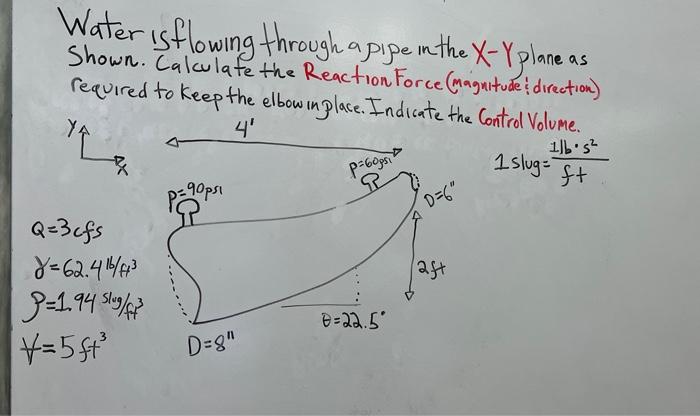 Water is flowing through a pipe in the X-Y plane as
Shown. Calculate the Reaction Force (magnitude & direction)
required to keep the elbow in place. Indicate the Control Volume.
Y
X
4'
1 slug = 1lb·s²/ft
P=90psi
P=60psi
D=6"
Q=3cfs
γ=62.4 lb/ft³
ρ=1.94 slug/ft³
V=5ft³
2ft
θ=22.5°
D=8"